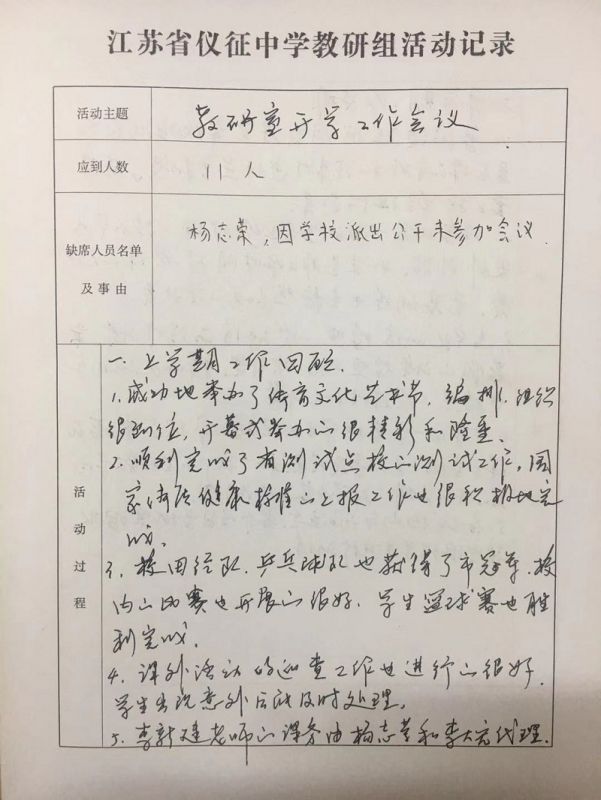 江苏省仪征中学教研组活动记录
活动主题
教研室开学工作会议
应到人数
11人
缺席人员名单
及事由
杨志荣,因学校派出公干未参加会议.
活动过程
一.上学期工作回顾.
1.成功地举办了体育文化艺术节,编排、组织
很到位,开幕式举办的很精彩和隆重.
2.顺利完成了省测试点校的测试工作,国
家体质健康标准的上报工作也很积极地完
成.
3.校田径队.乒乓球队也获得了市冠军.校
内的比赛也开展的很好.学生篮球赛也胜
利完成.
4.课外活动的巡查工作也进行的很好.
学生出现意外后能及时处理.
5.李新建老师的课务由杨志荣和李大代理.